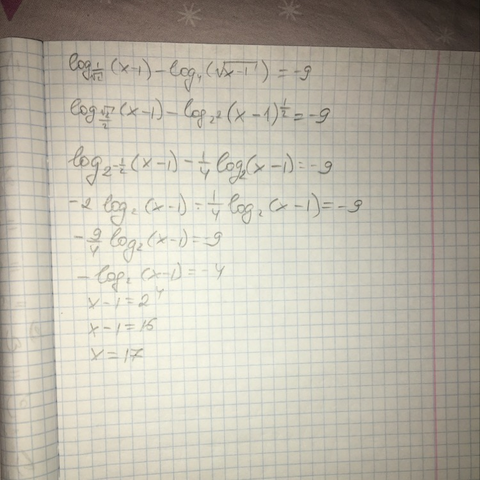 log_{\frac{1}{\sqrt{2}}}(x-1) - log_4(\sqrt{x-1}) = -9
log_{\frac{\sqrt{2}}{2}}(x-1) - log_{2^2}(x-1)^{\frac{1}{2}} = -9
log_{2^{-\frac{1}{2}}}(x-1) - \frac{1}{4} log_2(x-1) = -9
-2 log_2(x-1) = \frac{1}{4} log_2(x-1) = -9
-\frac{9}{4} log_2(x-1) = -9
-log_2(x-1) = -4
x-1 = 2^4
x-1 = 16
x = 17